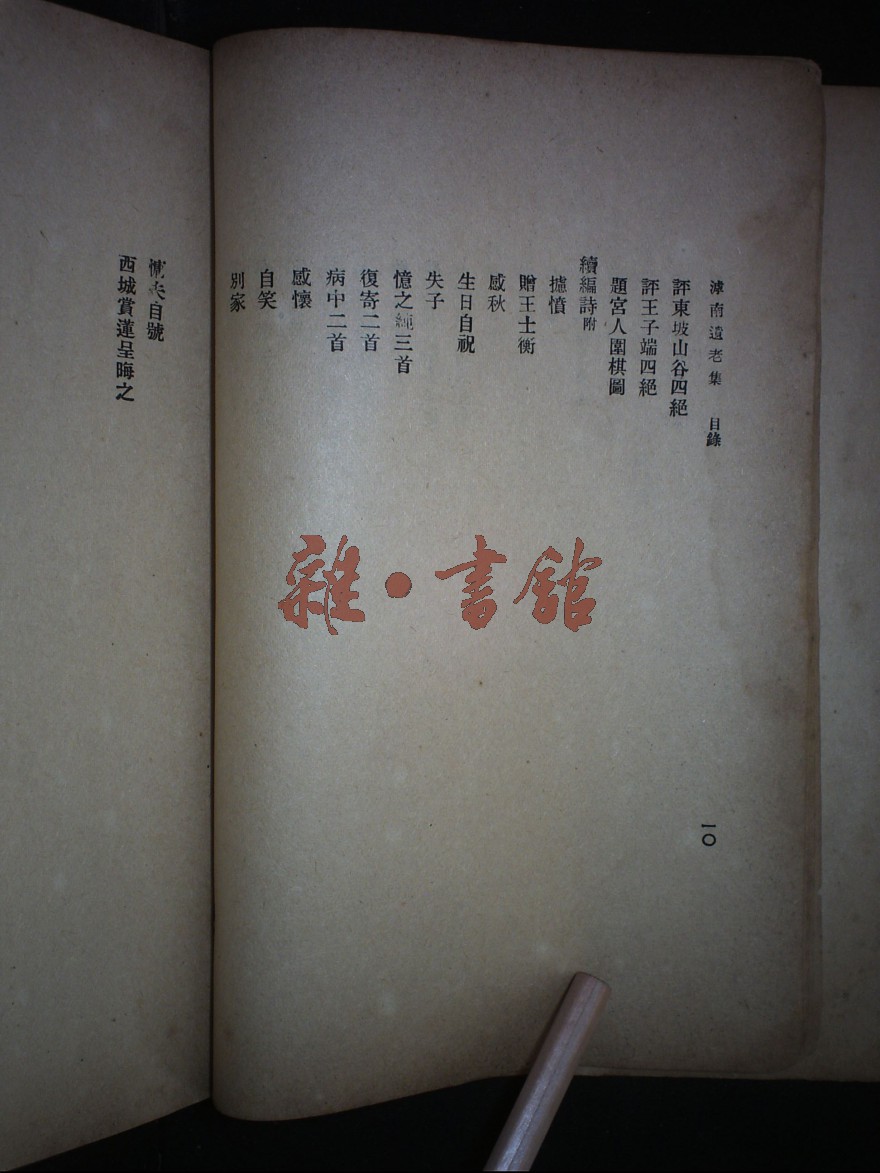 滹南遺老集 目錄
評東坡山谷四絕
評王子端四絕
題宮人圍棋圖
續編詩附
攄憤
贈王士衡
感秋
生日自祝
失子
憶之純三首
復寄二首
病中二首
感懷
自笑
別家
一〇
慵夫自號
西城賞蓮呈晦之
雜·書館